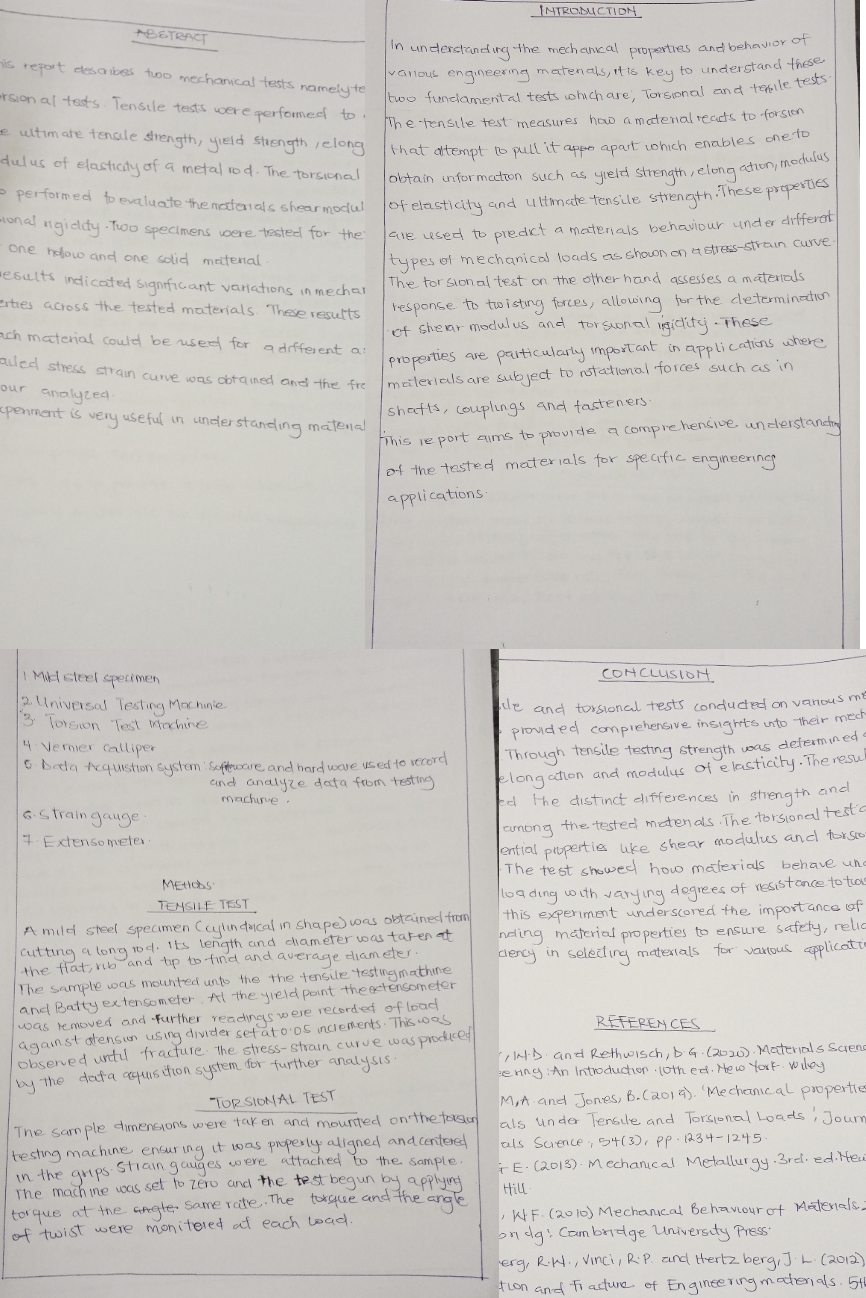 ABSTRACT
is report describes two mechanical tests namely te
rsional tests. Tensile tests were performed to
e ultimate tensile strength, yield strength, elong
dulus of elasticity of a metal rod. The torsional
o performed to evaluate the materials shear modul
ional rigidity. Two specimens were tested for the
one hollow and one solid material.
esults indicated significant variations in mechan
erties across the tested materials. These results
ach material could be used for a different a
ailed stress strain curve was obtained and the fre
our analyzed.
xperiment is very useful in understanding material
INTRODUCTION
In understanding the mechanical properties and behavior of
various engineering materials, it is key to understand these
two fundamental tests which are; Torsional and tensile tests.
The tensile test measures how a material reacts to forsion
that attempt to pull it appe apart which enables one to
obtain information such as yield strength, elongation, modulus
of elasticity and ultimate tensile strength. These properties
are used to predict a materials behaviour under different
types of mechanical loads as shown on a stress-strain curve.
The torsional test on the other hand assesses a materials
response to twisting forces, allowing for the determination
of shear modulus and torsional rigidity. These
properties are particularly important in applications where
materials are subject to rotational forces such as in
shafts, couplings and fasteners.
This report aims to provide a comprehensive understanding
of the tested materials for specific engineering
applications.
1 Mild steel specimen
2. Universal Testing Machine
3. Torsion Test Machine
4. Vernier calliper
5. Data Acquistion system: Software and hardware used to record
and analyze data from testing
machine.
6. Strain gauge.
7. Extensometer.
METHODS.
TENSILE TEST
A mild steel specimen (cylindrical in shape) was obtained from
cutting a long rod. Its length and diameter was taken at
the flat, rib and tip to find and average diameter.
The sample was mounted unto the the tensile testing machine
and Batty extensometer. At the yield point the extensometer
was removed and further readings were recorded of load
against etension using divider set at 0.05 increments. This was
observed until fracture. The stress-strain curve was produced
by the data acquisition system for further analysis.
TORSIONAL TEST
The sample dimensions were taken and mounted on the torsion
testing machine ensuring it was properly aligned and centered
in the grips. Strain gauges were attached to the sample.
The machine was set to zero and the test begun by applying
torque at the angle same rate. The torque and the angle
of twist were monitored at each load.
CONCLUSION
ile and torsional tests conducted on various m
provided comprehensive insights into their mech
Through tensile testing strength was determined
elongation and modulus of elasticity. The resul
ed the distinct differences in strength and
among the tested materials. The torsional test
ential properties like shear modulus and torsio
The test showed how materials behave un
loading with varying degrees of resistance to
this experiment underscored the importance of
nding material properties to ensure safety, relia
ciency in selecting materials for various applicati
REFERENCES
, W.D. and Rethwisch, D.G. (2020). Materials Scien
eering: An Introduction. 10th ed. New York: Wiley
M, A and Jones, B. (2019). 'Mechanical propertie
als under Tensile and Torsional Loads', Journ
als Science, 54(3), pp. 1234-1245.
G. E. (2013). Mechanical Metallurgy. 3rd. ed. New
Hill.
, W.F. (2010) Mechanical Behaviour of Materials.
ondg: Cambridge University Press.
berg, R.W., Vinci, R.P. and Hertzberg, J.L. (2012)
tion and Fracture of Engineering materials. 5th